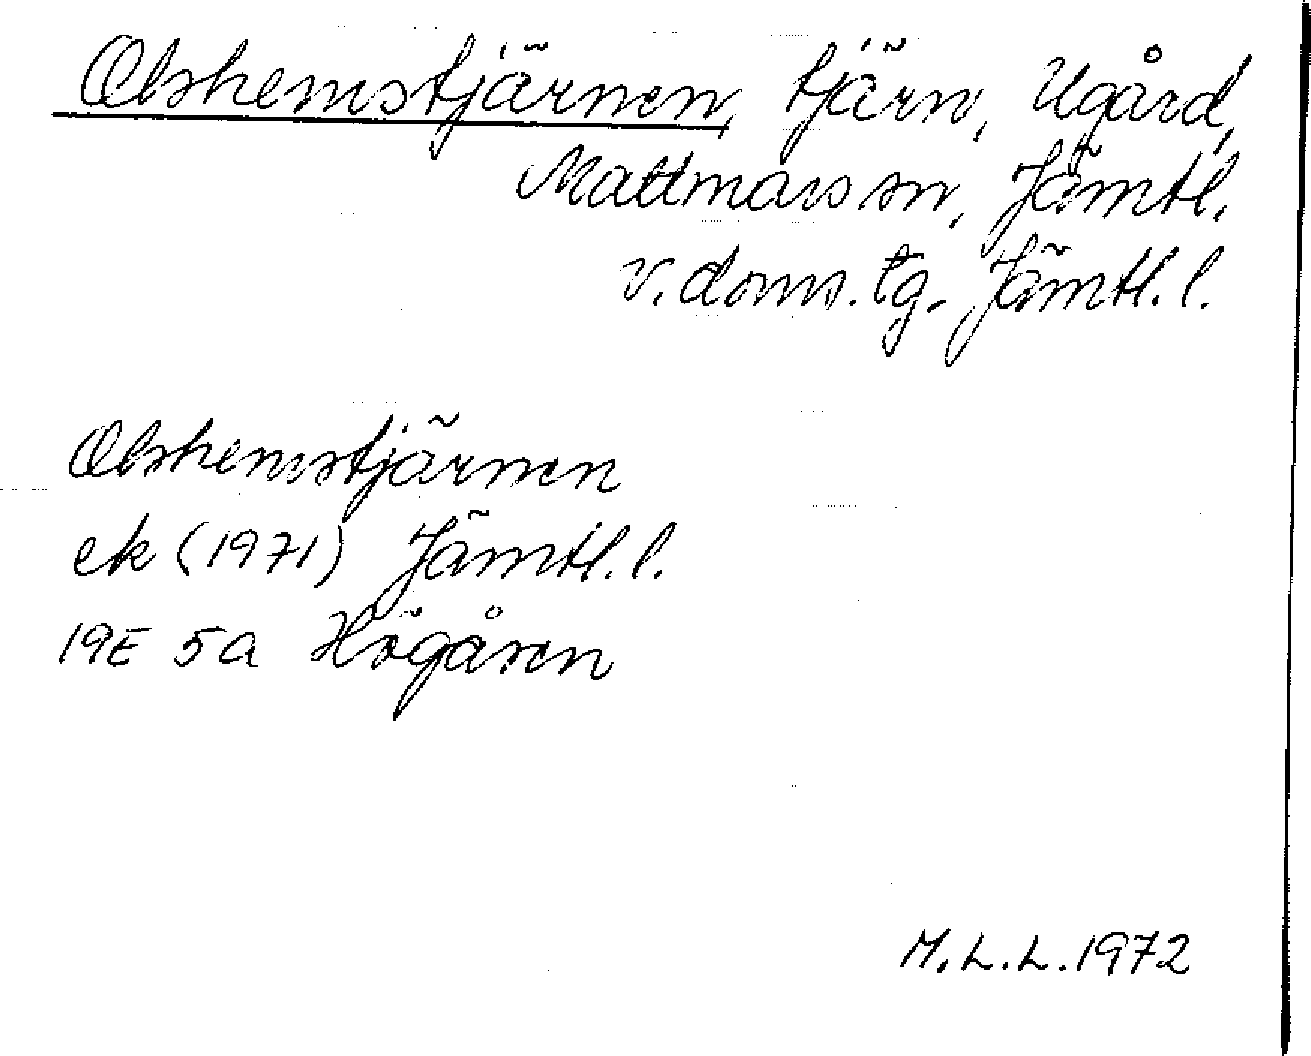 Olshemstjärnen, tjärn, Ugård,
Mattmars sn, Jämtl.
v. doms. tg. Jämtl. l.
Olshemstjärnen
ek (1971) Jämtl. l.
19E 5a Högåsen
M.L.L. 1972